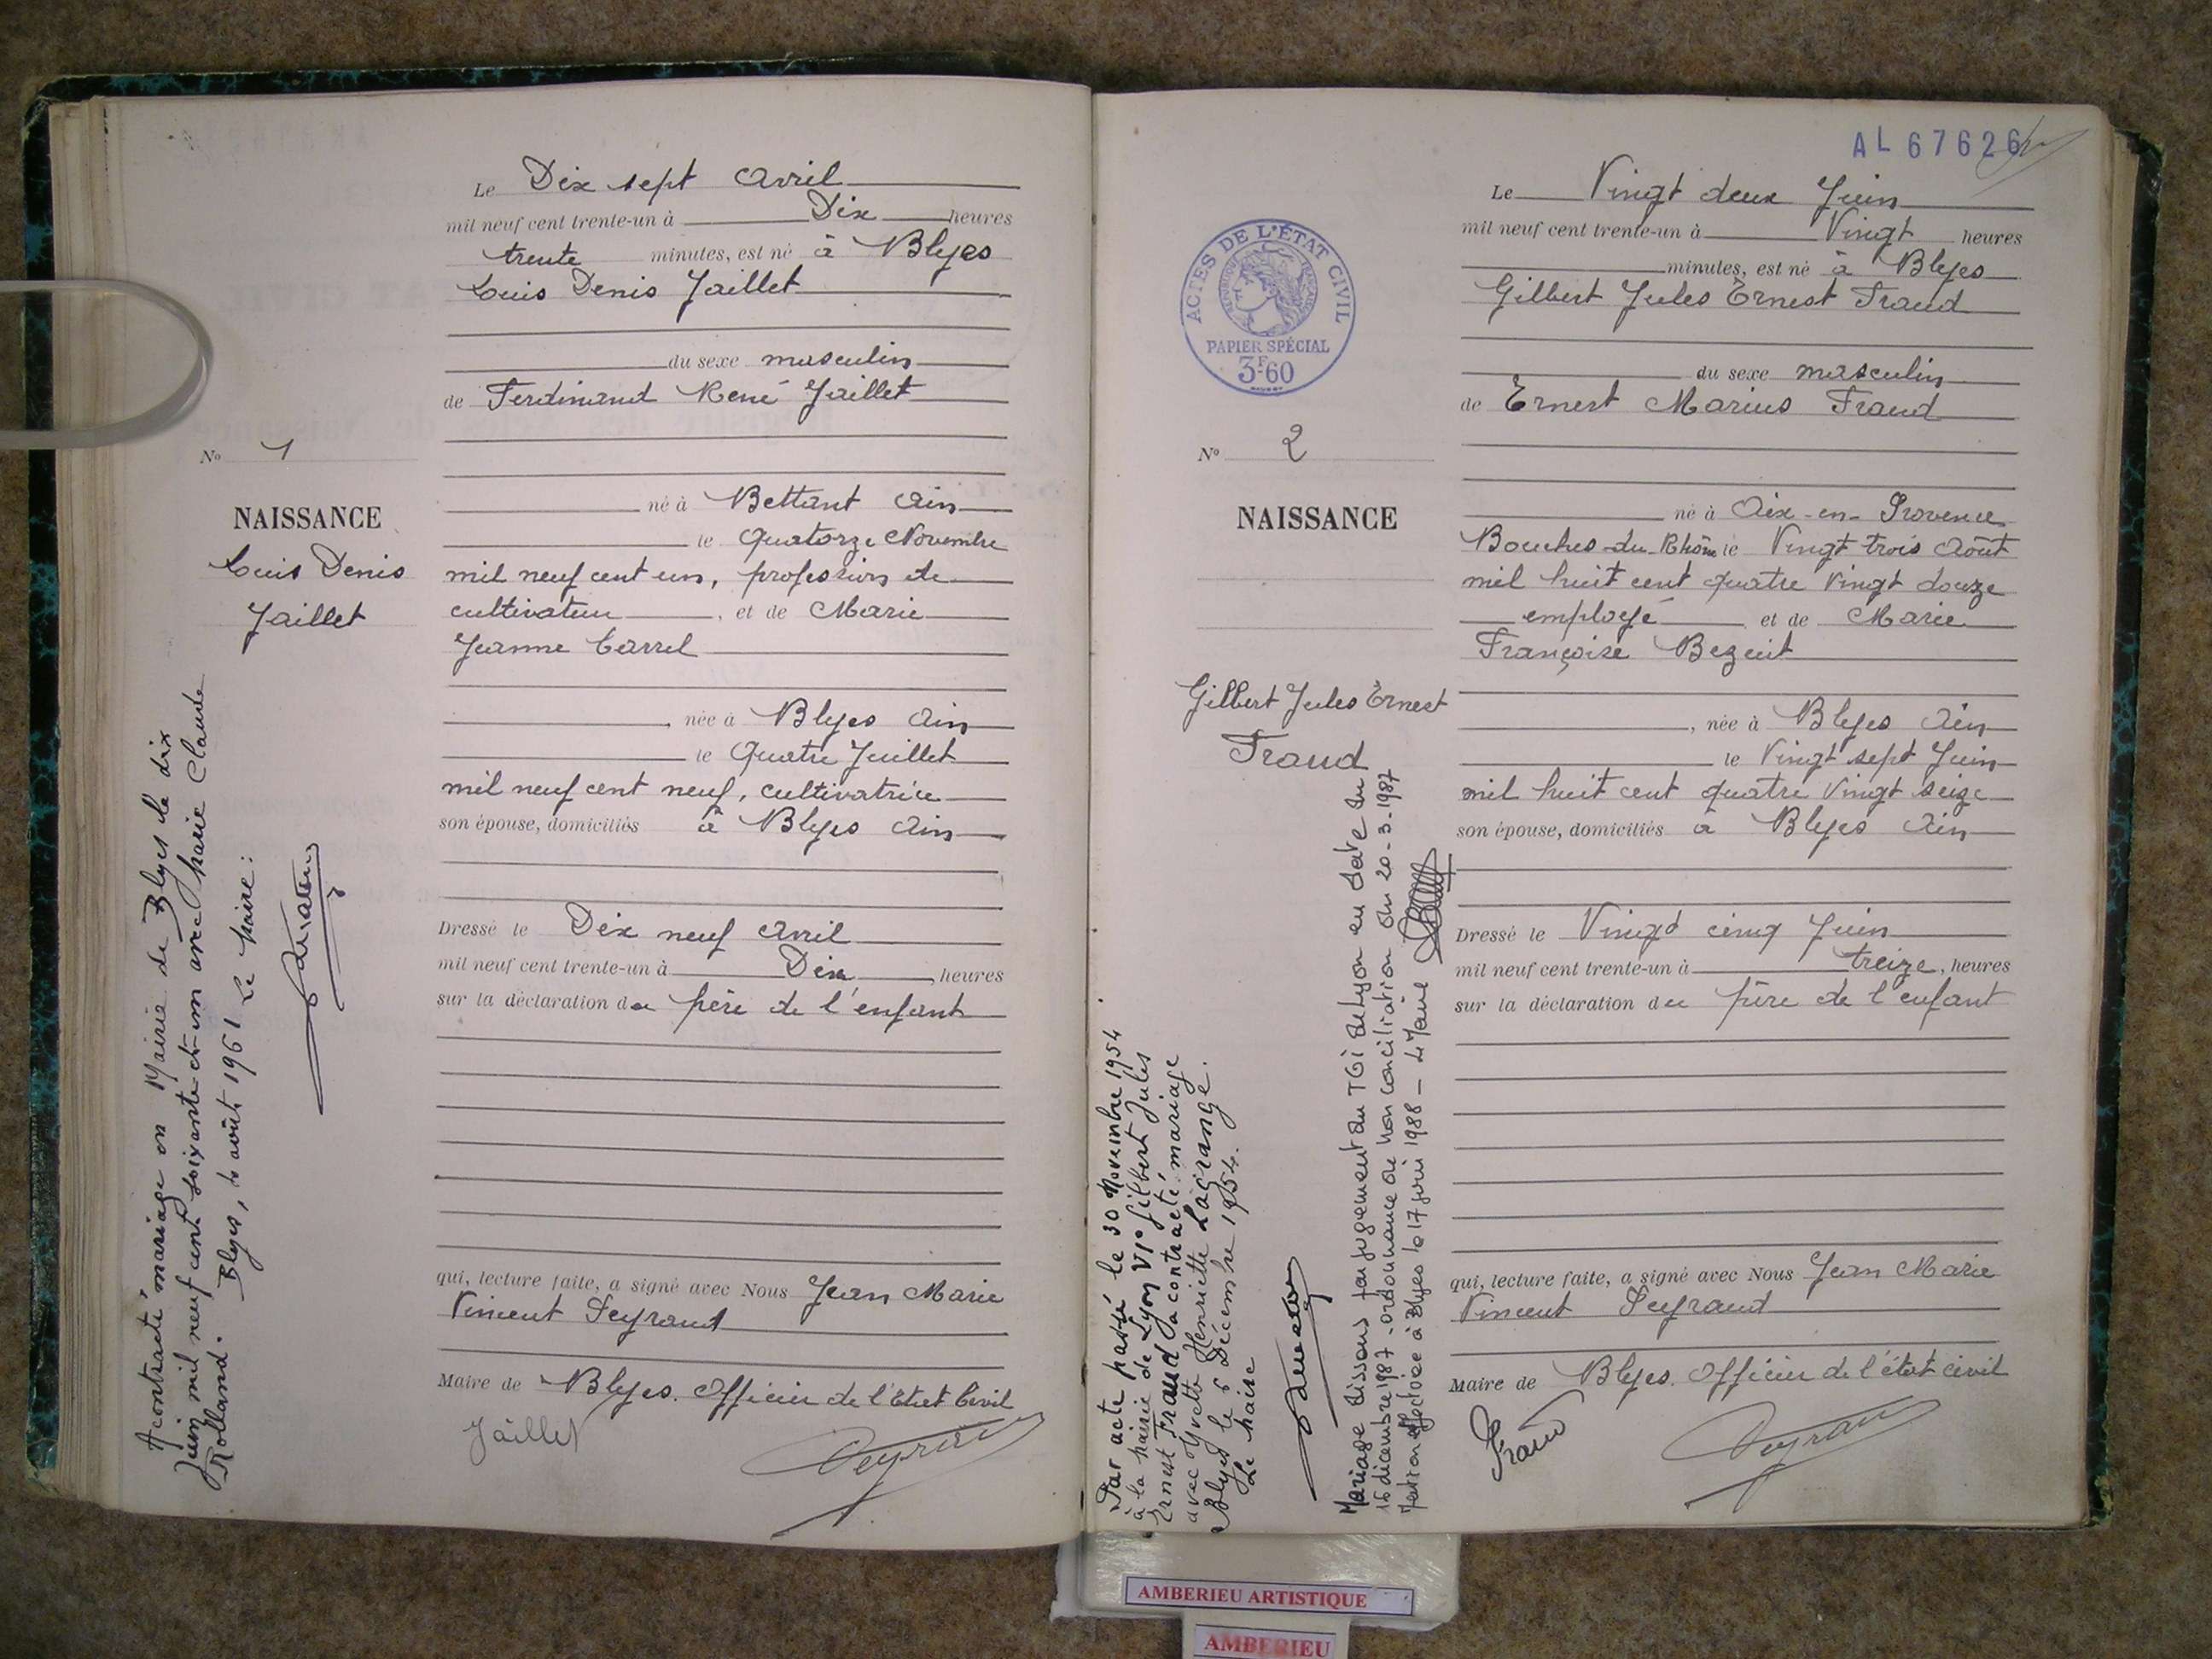 Le Dix sept Avril
mil neuf cent trente-un à Dix heures
trente minutes, est né à Blyes
Louis Denis Jaillet
du sexe masculin
de Ferdinand René Jaillet
né à Bettant Ain
le Quatorze Novembre
mil neuf cent un, profession de
cultivateur, et de Marie
Jeanne Carrel
, née à Blyes Ain
le Quatre Juillet
mil neuf cent neuf, cultivatrice
son épouse, domiciliés à Blyes Ain
Dressé le Dix neuf Avril
mil neuf cent trente-un à Dix, heures
sur la déclaration du père de l'enfant
qui, lecture faite, a signé avec Nous Jean Marie
Vincent Peyraud
Maire de Blyes. Officier de l'Etat Civil
Jaillet
Peyraud
No 1
NAISSANCE
Louis Denis
Jaillet
A contracté mariage en Mairie de Blyes le dix
Juin mil neuf cent soixante et un avec Marie Claude
Rolland. Blyes, le août 1961 Le Maire:
AL 67626
ACTES DE L'ÉTAT CIVIL
RÉPUBLIQUE FRANÇAISE
PAPIER SPÉCIAL
3F60
Le Vingt deux Juin
mil neuf cent trente-un à Vingt heures
minutes, est né à Blyes
Gilbert Jules Ernest Fraud
du sexe masculin
de Ernest Marius Fraud
né à Aix-en-Provence
Bouches-du-Rhône le Vingt trois Août
mil huit cent quatre vingt douze
employé et de Marie
Françoise Bezuit
, née à Blyes Ain
le Vingt sept Juin
mil huit cent quatre vingt seize
son épouse, domiciliés à Blyes Ain
Dressé le Vingt cinq Juin
mil neuf cent trente-un à treize, heures
sur la déclaration du père de l'enfant
qui, lecture faite, a signé avec Nous Jean Marie
Vincent Peyraud
Maire de Blyes. Officier de l'état civil
Fraud
Peyraud
No 2
NAISSANCE
Gilbert Jules Ernest
Fraud
Par acte passé le 30 Novembre 1954
à la mairie de Lyon VIe Gilbert Jules
Ernest Fraud a contracté mariage
avec Yvette Henriette Lagrange.
Blyes le 6 Décembre 1954.
Le Maire
Mariage dissous par jugement du TGI de Lyon en date du
16 décembre 1987 - ordonnance de non conciliation du 20-3-1987
Mention effectuée à Blyes le 17 juin 1988 - Le Maire
AMBERIEU ARTISTIQUE
AMBERIEU